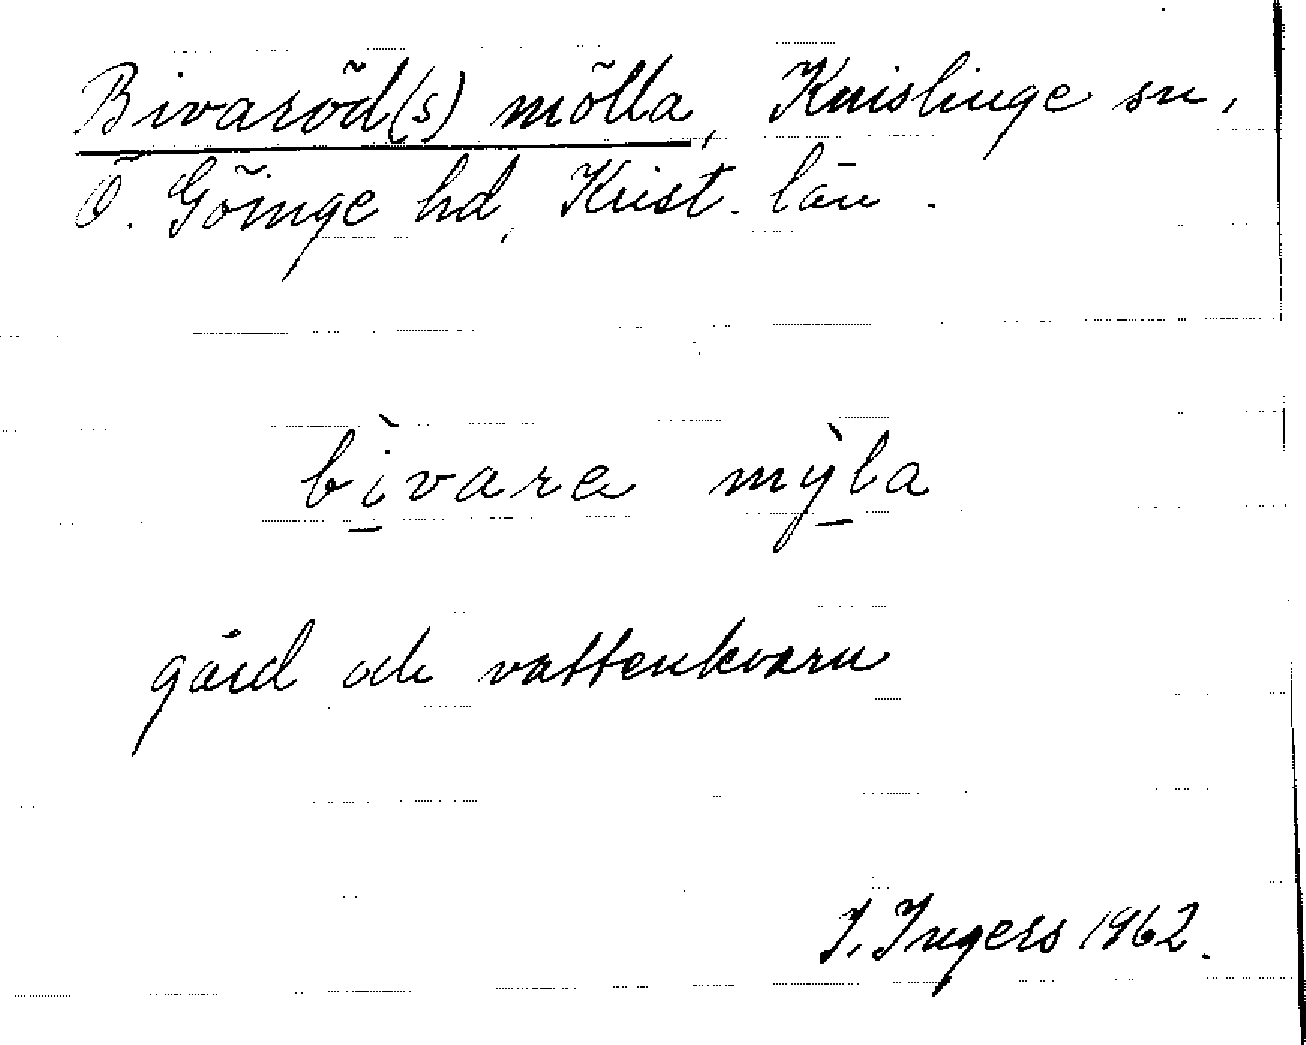 Bivaröd(s) mölla, Knislinge sn,
Ö. Göinge hd, Krist. län.
bì̱vara mỳ̱la
gård och vattenkvarn
I. Ingers 1962.